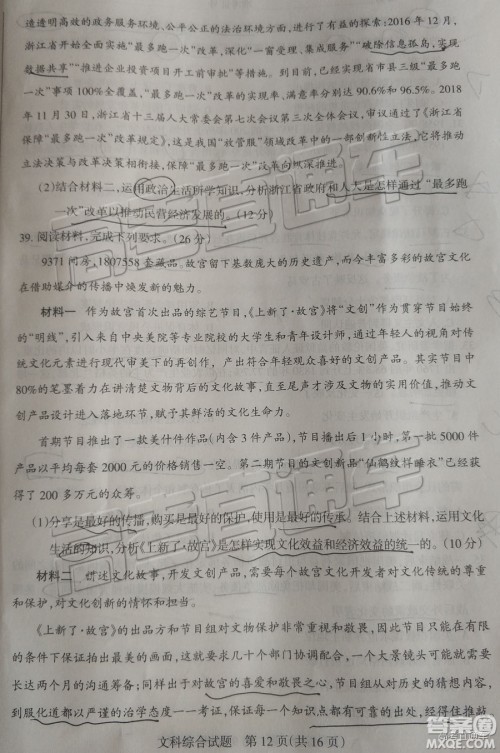 造透明高效的政务服务环境、公平公正的法治环境方面,进行了有益的探索:2016年12月,
浙江省开始全面实施“最多跑一次”改革,深化“一窗受理、集成服务”“破除信息孤岛,实现
数据共享”“推进企业投资项目开工前审批”等措施。到目前,已经实现省市县三级“最多跑
一次”事项100%全覆盖,“最多跑一次”改革的实现率、满意率分别达90.6%和96.5%。2018
年11月30日,浙江省十三届人大常委会第七次会议第三次全体会议,审议通过了《浙江省
保障“最多跑一次”改革规定》,这是我国“放管服”领域改革中的一部创新性正法,它将推动
立法决策与改革决策相衔接,保障“最多跑一次”改革向纵深推进。
(2)结合材料二,运用政治生活所学知识,分析浙江省政府和人大是怎样通过“最多跑
一次”改革以推动民营经济发展的。(12分)
39. 阅读材料,完成下列要求。(26分)
9371间房,1807558套藏品。故宫留下基数庞大的历史遗产,而今丰富多彩的故宫文化
在借助媒介的传播中焕发新的魅力。
材料一 作为故宫首次出品的综艺节目,《上新了·故宫》将“文创”作为贯穿节目始终
的“明线”,引入来自中央美院等专业院校的大学生和青年设计师,通过年轻人的视角对传
统文化元素进行现代审美下的再创作,产出符合年轻观众喜好的文创产品。其实节目中
80%的笔墨着力在讲清楚文物背后的文化故事,直至尾声才涉及文物的实用价值,推动文
创产品设计进入落地环节,赋予其鲜活的文化生命力。
首期节目推出了一款美什件作品(内含3件产品),节目播出后1小时,第一批5000件
产品以平均每套2000元的价格销售一空。第二期节目的文创新品“仙鹤纹样睡衣”已经获
得了200多万元的众筹。
(1)分享是最好的传播,购买是最好的保护,使用是最好的传承。结合上述材料,运用文化
生活的知识,分析《上新了·故宫》是怎样实现文化效益和经济效益的统一的。(10分)
材料二 讲述文化故事,开发文创产品,需要每个故宫文化开发者对文化传统的尊重
和保护,对文化创新的情怀和担当。
《上新了·故宫》的出品方和节目组对文物保护非常重视和敬畏,因此节目只能在有限
的条件下保证拍出最美的画面,这就要求几十个部门协调配合,一个大景镜头可能就需要
长达两个月的沟通筹备;同样出于对故宫的喜爱和敬畏之心,节目组对从历史的猜想内容,
到服化道都以严谨的治学态度一一考证,保证每一个知识点都有可靠的出处,经得住推敲,
文科综合试题 第12页(共16页)
高考直通车
高考直通车
答案圈